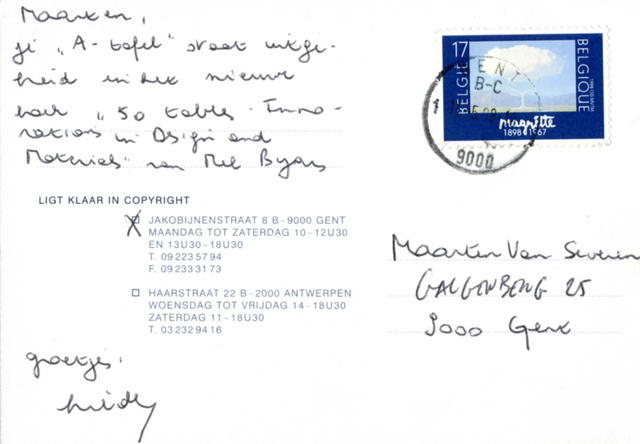 Maarten,
je "A-tafel" staat uitge-
breid in het nieuwe
boek "50 tables - Inno-
vations in Design and
Materials" van Mel Byars
LIGT KLAAR IN COPYRIGHT
JAKOBIJNENSTRAAT 8 B-9000 GENT
MAANDAG TOT ZATERDAG 10-12U30
EN 13U30-18U30
T. 09 223 57 94
F. 09 233 31 73
HAARSTRAAT 22 B-2000 ANTWERPEN
WOENSDAG TOT VRIJDAG 14-18U30
ZATERDAG 11-18U30
T. 03 232 94 16
groetjes.
17
BELGIE
BELGIQUE
magritte
1898 1967
GENT
B-C
9000
Maarten Van Severen
GALGENBERG 25
9000 Gent